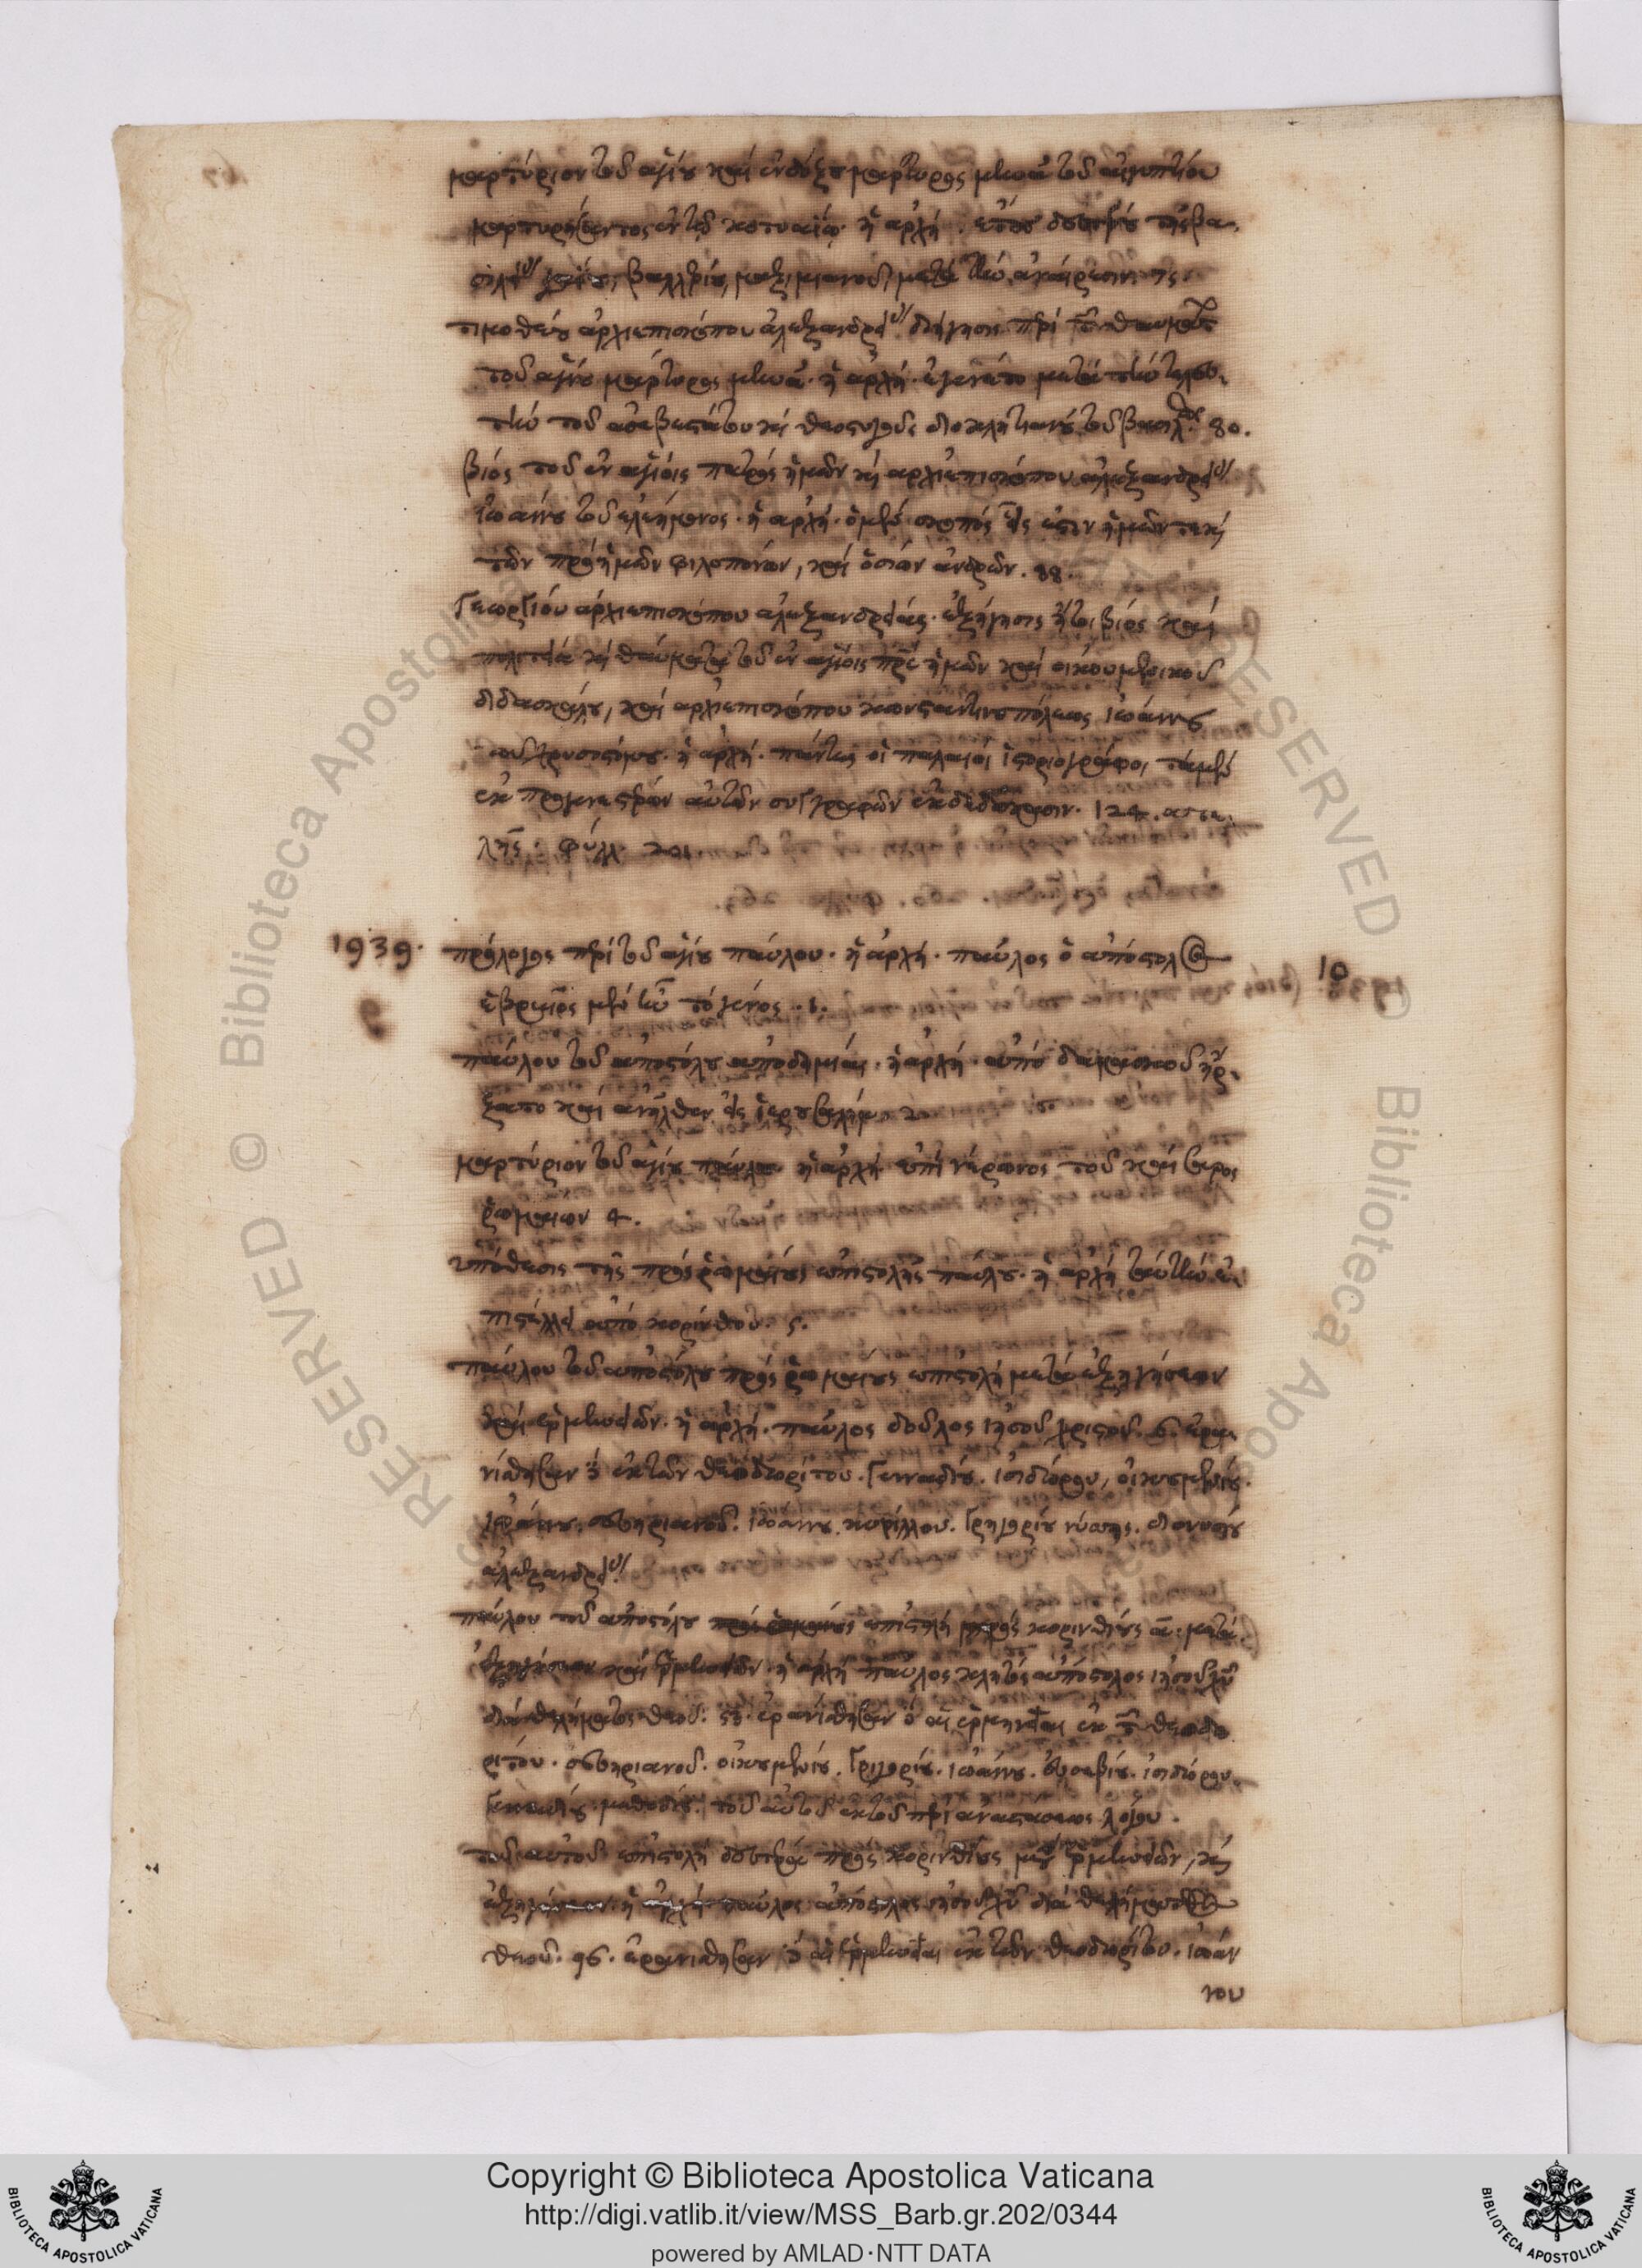 μαρτύριον τοῦ ἁγίου καὶ ἐνδόξου μάρτυρος μηνᾶ τοῦ αἰγυπτίου
μαρτυρήσαντος ἐν τῷ κοτυαείῳ. ἡ ἀρχή. ἔτους δευτέρου τῆς βα
τιμοθέου ἀρχιεπισκόπου ἀλεξανδρείας διήγησις περὶ τῶν θαυμάτων
τοῦ ἁγίου μάρτυρος μηνᾶ. ἡ ἀρχή. ἐγένετο μετὰ τὴν τελευ
τὴν τοῦ ἀσεβεστάτου καὶ θεοστυγοῦς διοκλητιανοῦ τοῦ βασιλέως 80.
βίος τοῦ ἐν ἁγίοις πατρὸς ἡμῶν καὶ ἀρχιεπισκόπου ἀλεξανδρείας
ἰωάννου τοῦ ἐλεήμονος. ἡ ἀρχή. ὁ μὲν σκοπὸς εἷς ἐστιν ἡμῶν τε καὶ
τῶν πρὸ ἡμῶν φιλοπόνων, καὶ ὁσίων ἀνδρῶν. 88.
Γεωργίου ἀρχιεπισκόπου ἀλεξανδρείας. ἐξήγησις ἤτοι βίος καὶ
πολιτεία καὶ θαύματα τοῦ ἐν ἁγίοις πρς ἡμῶν καὶ οἰκουμενικοῦ
διδασκάλου, καὶ ἀρχιεπισκόπου κωνσταντινουπόλεως ἰωάννου
τοῦ χρυσοστόμου. ἡ ἀρχή. πάντες οἱ παλαιοὶ ἱστοριογράφοι τὰ μὲν
ἐκ προγενεστέρων αὐτῶν συγγραφῶν ἐκδεδώκασιν. 124. ατε
λής. φύλλ. 201.
1939. πρόλογος περὶ τοῦ ἁγίου παύλου. ἡ ἀρχή. παῦλος ὁ ἀπόστολος 10
ἑβραῖος μὲν ἦν τὸ γένος. 1.
παύλου τοῦ ἀποστόλου ἀποδημίαι. ἡ ἀρχή. ἀπὸ δαμασκοῦ ἤρ
ξατο καὶ ἀνῆλθεν εἰς ἱερουσαλήμ. 2
μαρτύριον τοῦ ἁγίου παύλου. ἡ ἀρχή. ἐπὶ νέρωνος τοῦ καίσαρος
ῥωμαίων 4.
ὑπόθεσις τῆς πρὸς ῥωμαίους ἐπιστολῆς παύλου. ἡ ἀρχή ταύτην ἐ
πιστέλλει ἀπὸ κορίνθου. 5.
παύλου τοῦ ἀποστόλου πρὸς ῥωμαίους ἐπιστολὴ μετὰ ἐξηγήσεων
καὶ ἑρμηνειῶν. ἡ ἀρχή. παῦλος δοῦλος ἰησοῦ χριστοῦ. 6. ἐρα
νίσθησαν δ' ἐκ τῶν θεοδωρίτου. Γενναδίου. ἰσιδώρου, οἰκουμενίου.
ἰωάννου. σευηριανοῦ. ἰωάννου. κυρίλλου. Γρηγορίου νύσσης. διονυσίου
ἀλεξανδρείας.
παύλου τοῦ ἀποστόλου ἐπιστολὴ πρὸς κορινθίους α. μετὰ
ἐξηγήσεων καὶ ἑρμηνειῶν. ἡ ἀρχή παῦλος κλητὸς ἀπόστολος ἰησοῦ χυ
διὰ θελήματος θεοῦ. 53. ἐρανίσθησαν δ' αἱ ἑρμηνεῖαι ἐκ τῶν θεοδω
ρίτου. σευηριανοῦ. οἰκουμενίου. Γρηγορίου. ἰωάννου. εὐσεβίου. ἰσιδώρου.
Γενναδίου. μεθοδίου. τοῦ αὐτοῦ ἐκ τοῦ περὶ ἀναστάσεως λόγου.
τοῦ αὐτοῦ ἐπιστολὴ δευτέρα πρὸς κορινθίους μετὰ ἑρμηνειῶν, καὶ
ἐξηγήσεων. ἡ ἀρχή. παῦλος ἀπόστολος ἰησοῦ χυ διὰ θελήματος
θεοῦ. 96. ἐρανίσθησαν δ' αἱ ἑρμηνεῖαι ἐκ τῶν θεοδωρίτου. ἰωάν
νου
RESERVED © Biblioteca Apostolica
RESERVED © Biblioteca Apostolica
BIBLIOTECA APOSTOLICA VATICANA
Copyright © Biblioteca Apostolica Vaticana
http://digi.vatlib.it/view/MSS_Barb.gr.202/0344
powered by AMLAD·NTT DATA
BIBLIOTECA APOSTOLICA VATICANA